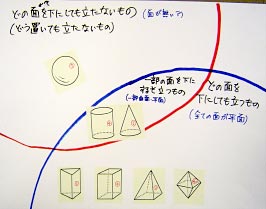 どの面を下にしても立たないもの (面が無い?)
(どう置いても立たないもの)
一部の面を下に
すると立つもの
(一部曲面・平面)
どの面を
下にしても立つもの
(全ての面が平面)